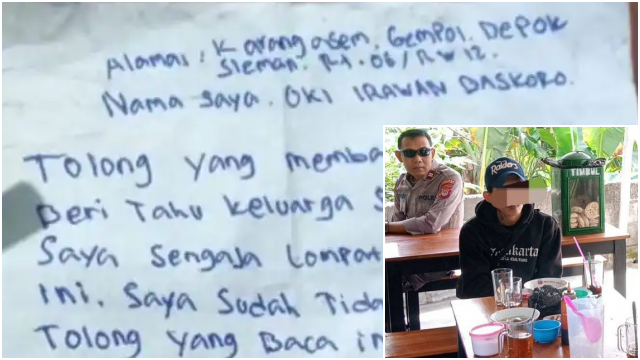 Alamat : Karangasem. Gempol. Depok
Sleman. RT. 06/RW 12.
Nama saya. OKI IRAWAN BASKORO.
Tolong yang memba
Beri Tahu Keluarga S
Saya Sengaja Lompat
Ini. Saya Sudah Tida
Tolong yang Baca in
Raiders
TIMBUL